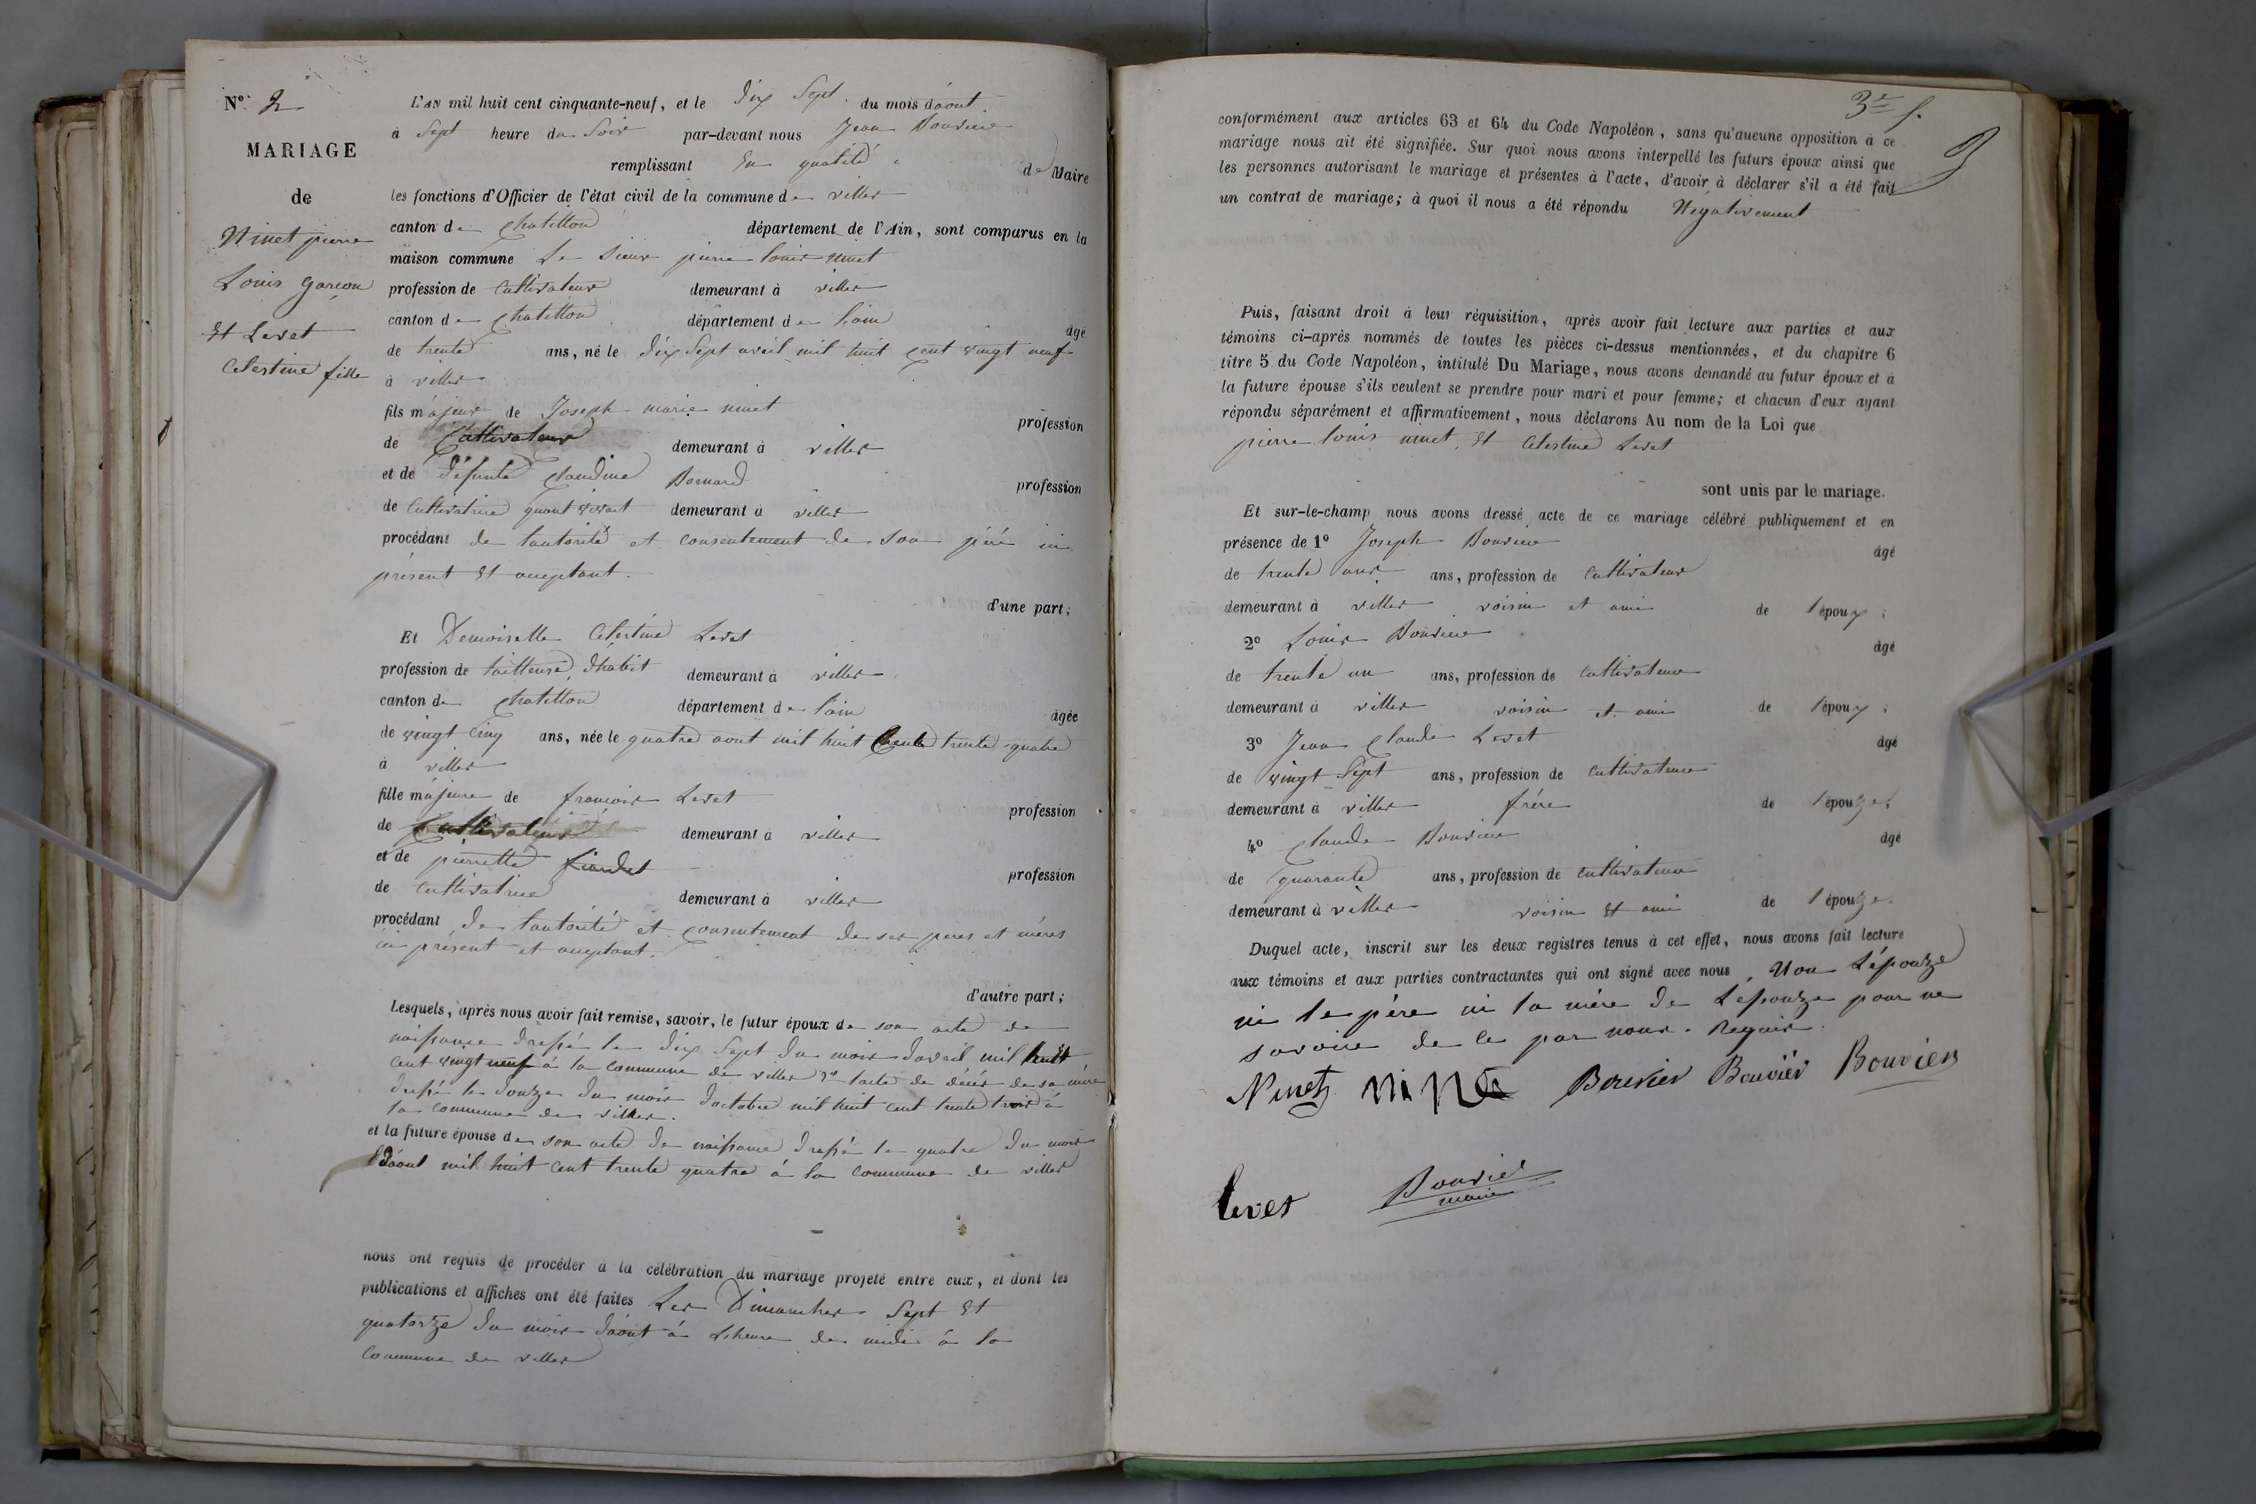 N.º 2
MARIAGE
de
Ninet pierre
Louis garçon
Et Levet
Celestine fille
L'AN mil huit cent cinquante-neuf, et le dix Sept du mois d'aout
à Sept heure du Soir par-devant nous Jean Bouvier
remplissant En qualité de Maire
les fonctions d'Officier de l'état civil de la commune de villes
canton de Chatillon département de l'Ain, sont comparus en la
maison commune Le Sieur pierre louis ninet
profession de Cultivateur demeurant à villes
canton de Chatillon département de lain âgé
de trente ans, né le dix Sept avril mil huit cent vingt neuf
à villes
fils majeur de Joseph marie ninet profession
de Cultivateur demeurant à villes
et de défunte Claudine Bornard profession
de Cultivatrice quant vivait demeurant à villes
procédant de lautorité et consentement de son père ici
présent Et acceptant.
d'une part;
Et Demoiselle Celestine Levet
profession de tailleuse d'habit demeurant à villes
canton de Chatillon département de lain âgée
de vingt Cinq ans, née le quatre aout mil huit Cent trente quatre
à villes
fille majeure de françois Levet profession
de Cultivateur demeurant à villes
et de pierrette profession
de Cultivatrice demeurant à villes
procédant de lautorité et consentement de ses peres et mères
ici présent et acceptant.
d'autre part;
Lesquels, après nous avoir fait remise, savoir, le futur époux de son acte de
naissance dressé le dix Sept du mois davril mil huit
cent vingt neuf à la commune de villes 2º lacte de décés de sa mère
dressé le douze du mois doctobre mil huit cent trente trois à
la commune de villes.
et la future épouse de son acte de naissance dressé le quatre du mois
d'aout mil huit cent trente quatre à la commune de villes
nous ont requis de procéder à la célébration du mariage projeté entre eux, et dont les
publications et affiches ont été faites Les Dimanches Sept Et
quatorze du mois d'aout à Lheure de midi à la
Commune de villes
3e f.
3
conformément aux articles 63 et 64 du Code Napoléon, sans qu'aucune opposition à ce
mariage nous ait été signifiée. Sur quoi nous avons interpellé les futurs époux ainsi que
les personnes autorisant le mariage et présentes à l'acte, d'avoir à déclarer s'il a été fait
un contrat de mariage; à quoi il nous a été répondu Négativement
Puis, faisant droit à leur réquisition, après avoir fait lecture aux parties et aux
témoins ci-après nommés de toutes les pièces ci-dessus mentionnées, et du chapitre 6
titre 5 du Code Napoléon, intitulé Du Mariage, nous avons demandé au futur époux et à
la future épouse s'ils veulent se prendre pour mari et pour femme; et chacun d'eux ayant
répondu séparément et affirmativement, nous déclarons Au nom de la Loi que
pierre louis ninet, Et Celestine Levet
sont unis par le mariage.
Et sur-le-champ nous avons dressé acte de ce mariage célébré publiquement et en
présence de 1º Joseph Bouvier âgé
de trente ans, profession de Cultivateur
demeurant à villes voisin et ami de lépoux;
2º Louis Bouvier âgé
de trente un ans, profession de Cultivateur
demeurant à villes voisin et ami de lépoux;
3º Jean Claude Levet âgé
de vingt Sept ans, profession de Cultivateur
demeurant à villes frére de lépouze;
4º Claude Bouvier âgé
de quarante ans, profession de Cultivateur
demeurant à villes voisin Et ami de lépouze.
Duquel acte, inscrit sur les deux registres tenus à cet effet, nous avons fait lecture
aux témoins et aux parties contractantes qui ont signé avec nous, Non Lépouze
ni le père ni la mère de Lépouze pour ne
savoire de ce par nous Requis.
Ninet Ninet Bouvier Bouvier Bouvier
levet Bouvier
maire